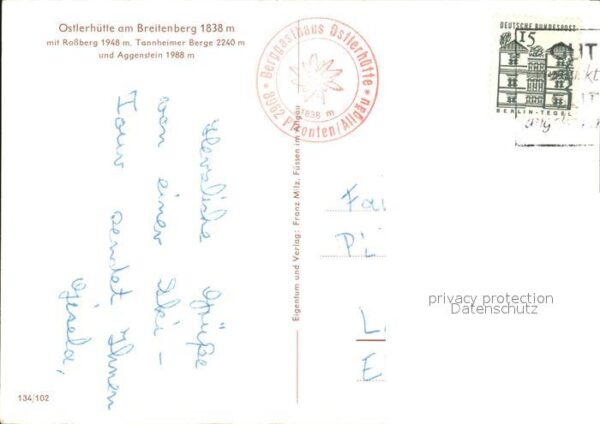 Ostlerhütte am Breitenberg 1838 m
mit Roßberg 1948 m, Tannheimer Berge 2240 m
und Aggenstein 1988 m
* Berggasthaus Ostlerhütte *
1838 m
8962 Pfronten/Allgäu
DEUTSCHE BUNDESPOST
15
BERLIN-TEGEL
Herzliche Grüße
von einer Ski-
Tour sendet Ihnen
Gisela,
Eigentum und Verlag: Franz Milz, Füssen im Allgäu
privacy protection
Datenschutz
134/102